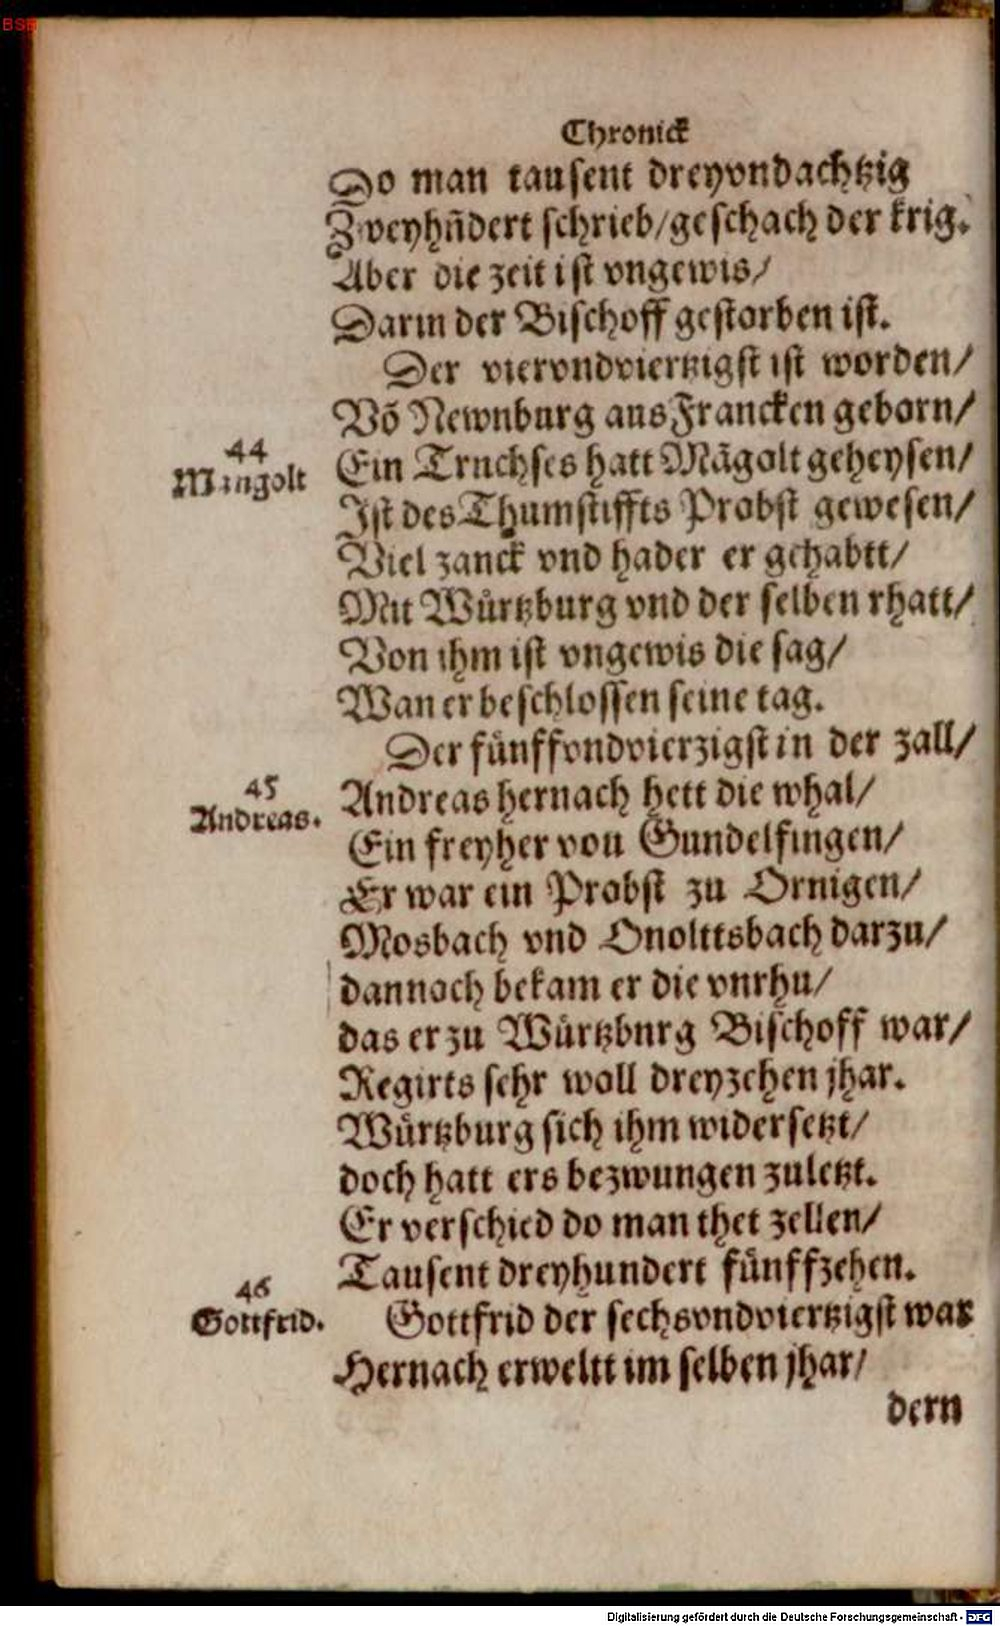 BSB
Chronick
Do man tausent dreyvndachtzig
Zweyhũdert schrieb/geschach der krig.
Aber die zeit ist vngewis/
Darin der Bischoff gestorben ist.
Der viervndviertzigst ist worden/
Võ Newnburg aus Francken geborn/
44
Mangolt
Ein Truchses hatt Mãgolt geheysen/
Ist des Thumstiffts Probst gewesen/
Viel zanck vnd hader er gehabtt/
Mit Wuͤrtzburg vnd der selben rhatt/
Von ihm ist vngewis die sag/
Wan er beschlossen seine tag.
Der fuͤnffvndvierzigst in der zall/
45
Andreas.
Andreas hernach hett die whal/
Ein freyher von Gundelfingen/
Er war ein Probst zu Ornigen/
Mosbach vnd Onolttsbach darzu/
dannoch bekam er die vnrhu/
das er zu Wuͤrtzbnrg Bischoff war/
Regirts sehr woll dreyzehen jhar.
Wuͤrtzburg sich ihm widersetzt/
doch hatt ers bezwungen zuletzt.
Er verschied do man thet zellen/
Tausent dreyhundert fuͤnffzehen.
46
Gottfrid.
Gottfrid der sechsvndviertzigst war
Hernach erweltt im selben jhar/
dern
Digitalisierung gefördert durch die Deutsche Forschungsgemeinschaft - DFG